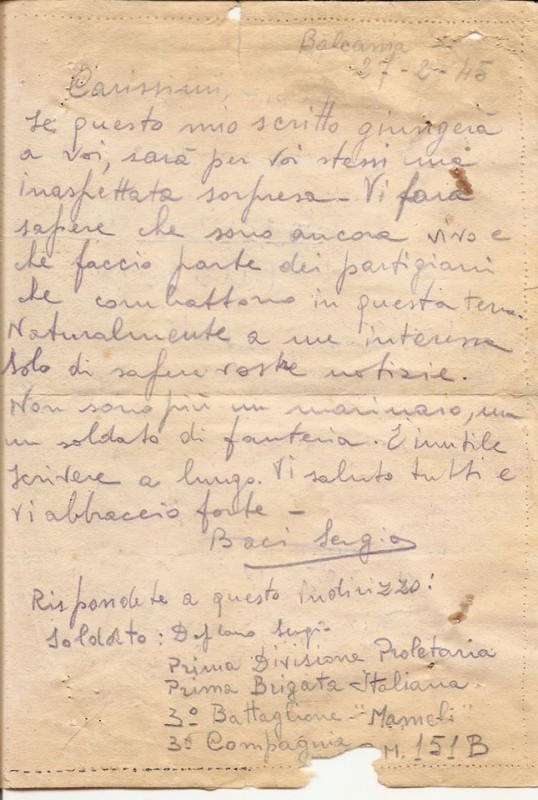 Balcania
27-2-45
Carissimi,
Se questo mio scritto giungerà
a voi, sarà per voi stessi una
inaspettata sorpresa - Vi farà
sapere che sono ancora vivo e
che faccio parte dei partigiani
che combattono in questa terra.
Naturalmente a me interessa
solo di sapere vostre notizie.
Non sono più un marinaio, ma
un soldato di fanteria. È inutile
scrivere a lungo. Vi saluto tutti e
vi abbraccio forte -
Baci Sergio
Rispondete a questo indirizzo:
Soldato: Sergio
Prima Divisione Proletaria
Prima Brigata Italiana
3º Battaglione "Mameli"
3ª Compagnia - M. 151B